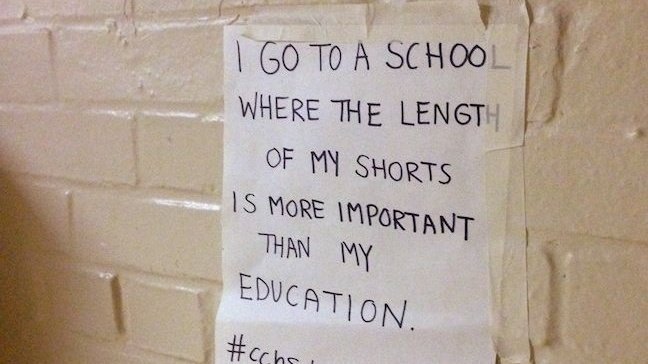 I GO TO A SCHOOL
WHERE THE LENGTH
OF MY SHORTS
IS MORE IMPORTANT
THAN MY
EDUCATION.